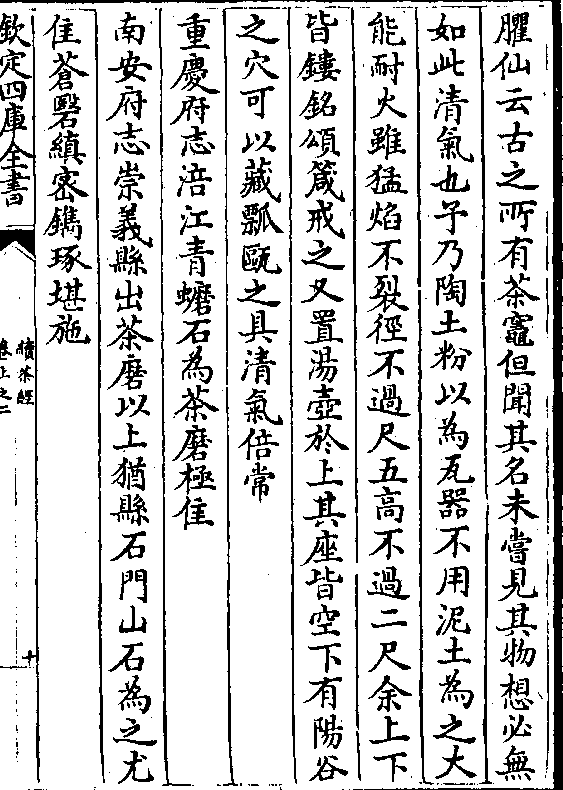 臞仙云古之所有茶竈但聞其名未嘗見其物想必無
如此清氣也予乃陶土粉以為瓦器不用泥土為之大
能耐火雖猛焰不裂徑不過尺五高不過二尺余上下
皆鏤銘頌箴戒之又置湯壺於上其座皆空下有陽谷
之穴可以藏瓢甌之具清氣倍常
重慶府志涪江青䗫石為茶磨極佳
南安府志崇義縣出茶磨以上猶縣石門山石為之尤
佳蒼礐縝密鐫琢堪施
欽定四庫全書
續茶經
卷上之二
十